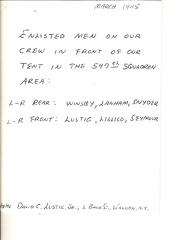 MARCH 1945
ENLISTED MEN ON OUR
CREW IN FRONT OF OUR
TENT IN THE 547th SQUADRON
AREA:
L-R REAR: WINSBY, LANHAM, SNYDER
L-R FRONT: LUSTIG, LILLICO, SEYMOUR
DAVID C. LUSTIG, JR., WALDEN, N.Y.